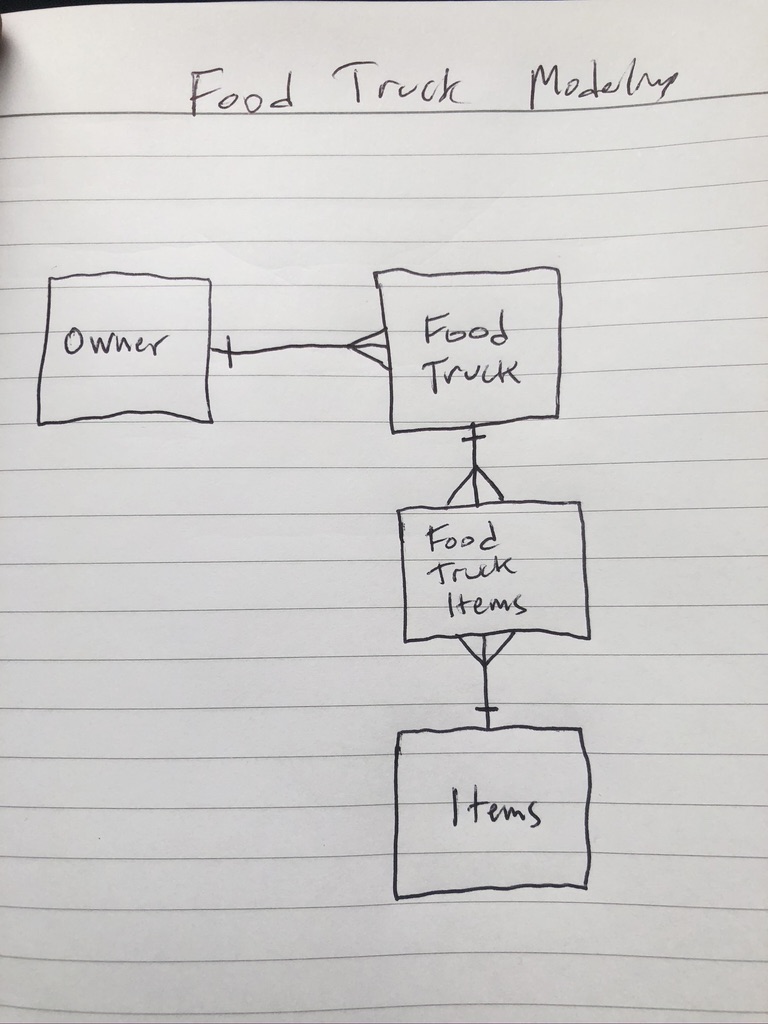 Food Truck Modeling
Owner
Food
Truck
Food
Truck
Items
Items